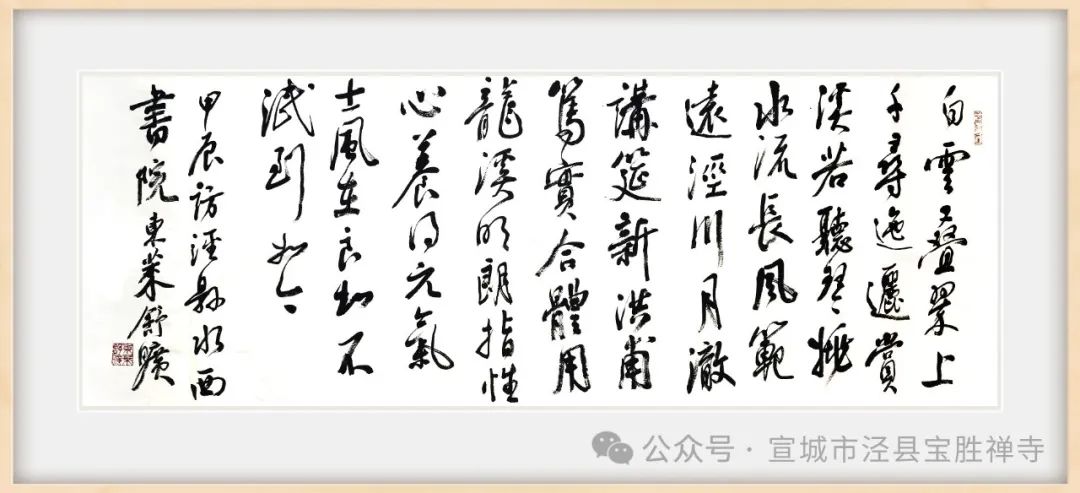 白雲疊翠上
千尋迤邐賞
溪若聽琴桃
水流長風範
遠涇川月澈
講筵新洪甫
篤實合體用
龍溪明朗指性
心養得元氣
士風在良知不
泯到如今
甲辰訪涇縣水西
書院東萊舒曠
公众号·宣城市泾县宝胜禅寺